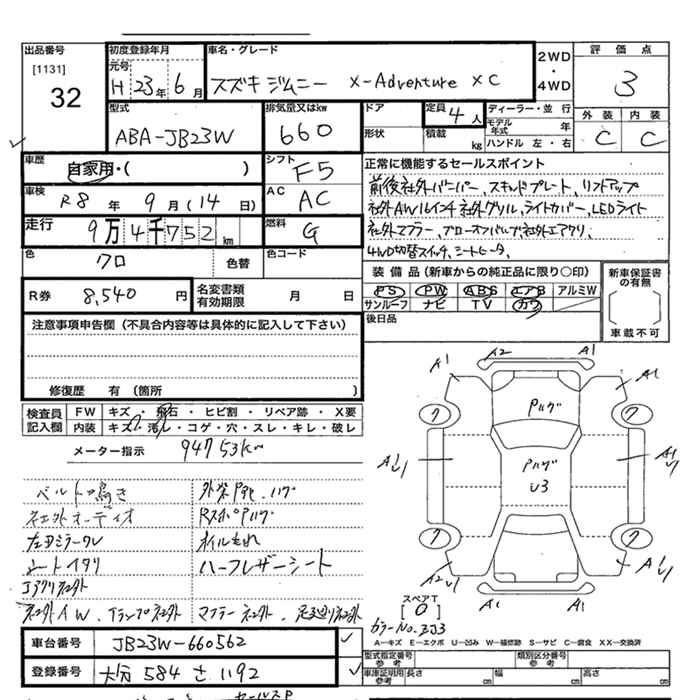 出品番号 [1131] 32
初度登録年月 元号 H 23年 6月
車名・グレード スズキ ジムニー X-Adventure XC
2WD ・ 4WD
評価点 3
型式 ABA-JB23W
排気量又はkw 660
ドア 定員 4人
形状 積載 kg
ディーラー・並行
モデル年式 年
ハンドル 左・右
外装 C 内装 C
車歴 自家用・( )
シフト F5
車検 R8年 9月(14日)
AC AC
走行 9万4千752km
燃料 G
色 クロ 色替
色コード
R券 8,540円
名変書類有効期限 月 日
正常に機能するセールスポイント
前後社外バンパー、スキッドプレート、リフトアップ
社外AW16インチ 社外グリル、ライトカバー、LEDライト
社外マフラー、ブローオフバルブ、社外エアクリ、
4WD切替スイッチ、シートヒータ、
装備品(新車からの純正品に限り○印)
PS PW ABS エアB アルミW
サンルーフ ナビ TV カワ
後日品
新車保証書の有無
車載不可
注意事項申告欄(不具合内容等は具体的に記入して下さい)
修復歴 有(箇所 )
検査員記入欄
FW キズ・飛石・ヒビ割・リペア跡・X要
内装 キズ・汚レ・コゲ・穴・スレ・キレ・破レ
メーター指示 94753km
ベルト鳴き
社外オーディオ
左Dミラーウレ
シートイタリ
外装
オイルもれ
ハーフレザーシート
社外AW、Fランプ社外
マフラー社外、足廻り社外
車台番号 JB23W-660562
登録番号 大分 584 さ 1192
A1 A2 A1
A1 A1
Pハゲ
Pハゲ
U3
A2U1
A1 A1
スペアT [0]
カラーNo. ZJ3
A-キズ E-エクボ U-凹み W-補修跡 S-サビ C-腐食 XX-交換済
型式指定番号参考
類別区分番号参考
車庫証明用参考 長さ cm 幅 cm 高さ cm